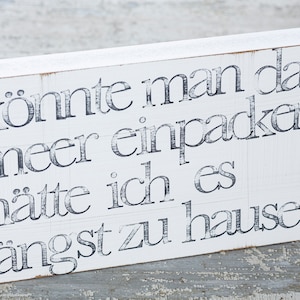 könnte man da
meer einpacke
hätte ich es
längst zu hause